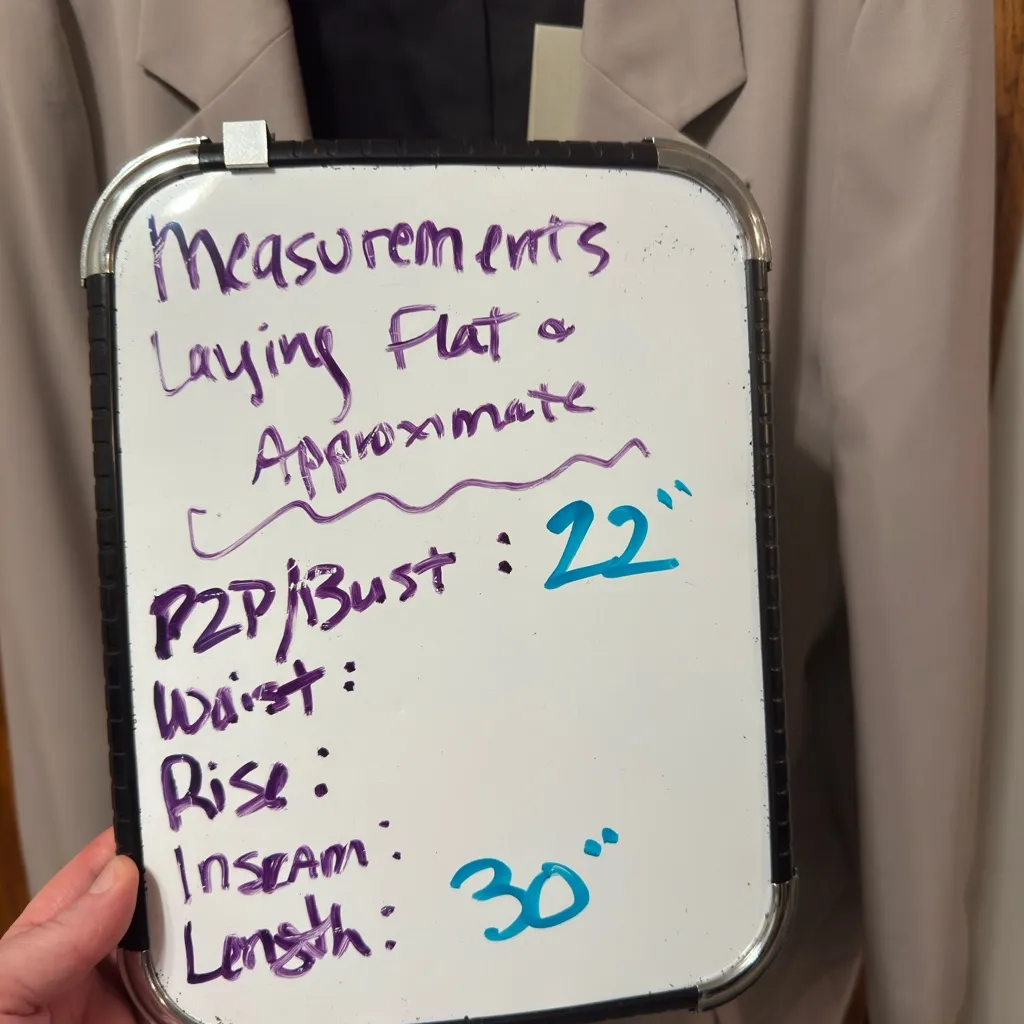 Measurements
Laying Flat &
Approximate
P2P/Bust : 22"
Waist :
Rise :
Inseam :
Length : 30"